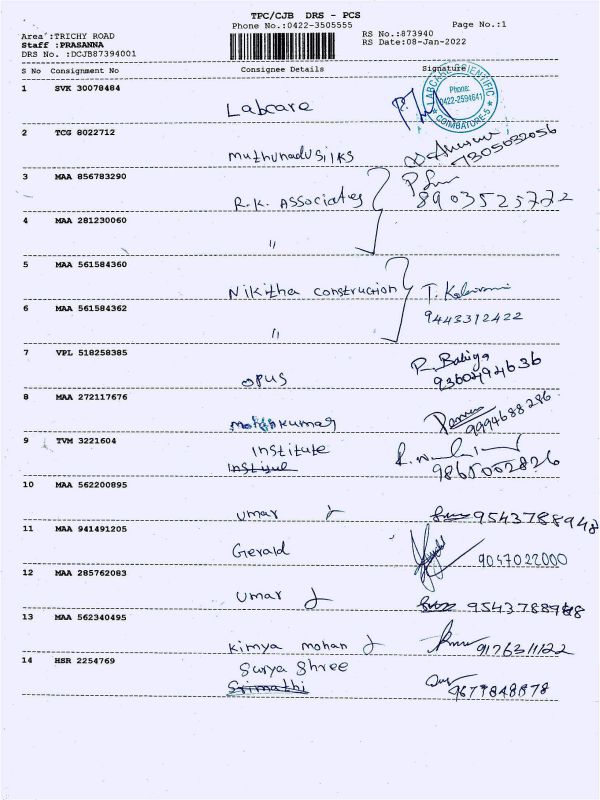 TPC/CJB DRS - PCS
Phone No.:0422-3505555 Page No.:1
Area :TRICHY ROAD RS No.:873940
Staff :PRASANNA RS Date:08-Jan-2022
DRS No. :DCJB87394001
S No Consignment No Consignee Details Signature
LABCARE SCIENTIFIC
Phone:
0422-2594641
COIMBATORE-5
1 SVK 30078484
Labcare
2 TCG 8022712
muthunadusilks 7305032056
3 MAA 856783290
R.K. Associates 8903525772
4 MAA 281230060
"
5 MAA 561584360
Nikitha construction T.
6 MAA 561584362 9443312422
"
7 VPL 518258385
opus R. Babiya
8 MAA 272117676
9994688286
9 TVM 3221604
Institute
Institue 9865052826
10 MAA 562200895
umar 9543788948
11 MAA 941491205
Gerald 9047022000
12 MAA 285762083
umar 9543788948
13 MAA 562340495
Kimya mohan 9176311122
14 HSR 2254769
Surya Shree
Srimathi 9677848878